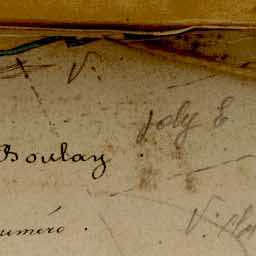 V.
Joly E
Boulay
numéro.